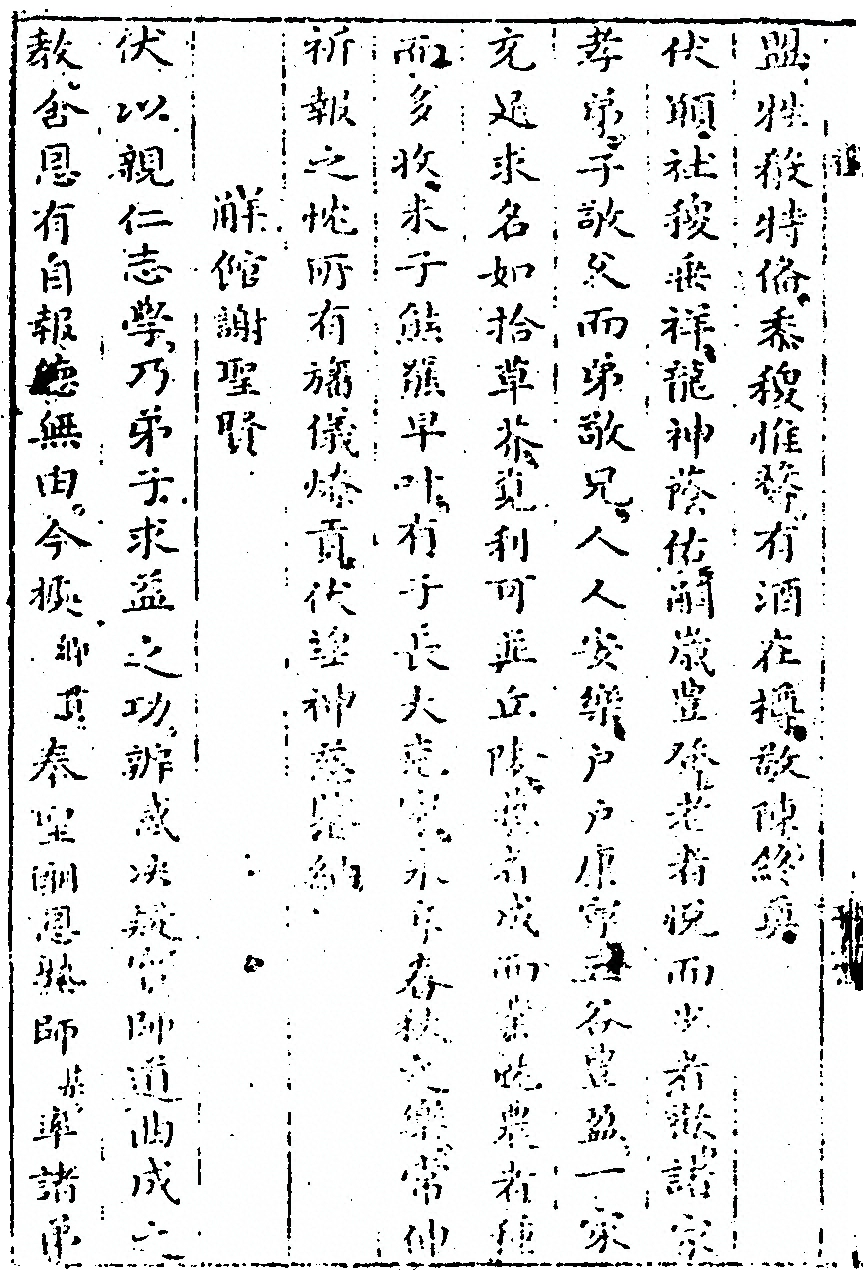 盟牲殺特俻黍稷惟馨有酒在樽敬陳終奠
伏願社稷垂祥龍神蔭佑嗣歲豊登老者悅而少者歡諸家
孝弟子敬父而弟敬兄人人安樂户户康寧五谷豊盈一家
充足求名如拾草芥覓利可並丘陵藝者成而業就農者種
而多收求子熊羆早叶有子長大克家永年春秋之樂常伸
祈報之忱所有旛儀燎貢伏望神慈鑒納
解館謝聖賢
伏以親仁志學乃弟子求益之功辨惑决疑實師道曲成之
教含恩有自報德無由今揀 卿具 奉聖酬恩兹師 某 率諸弟